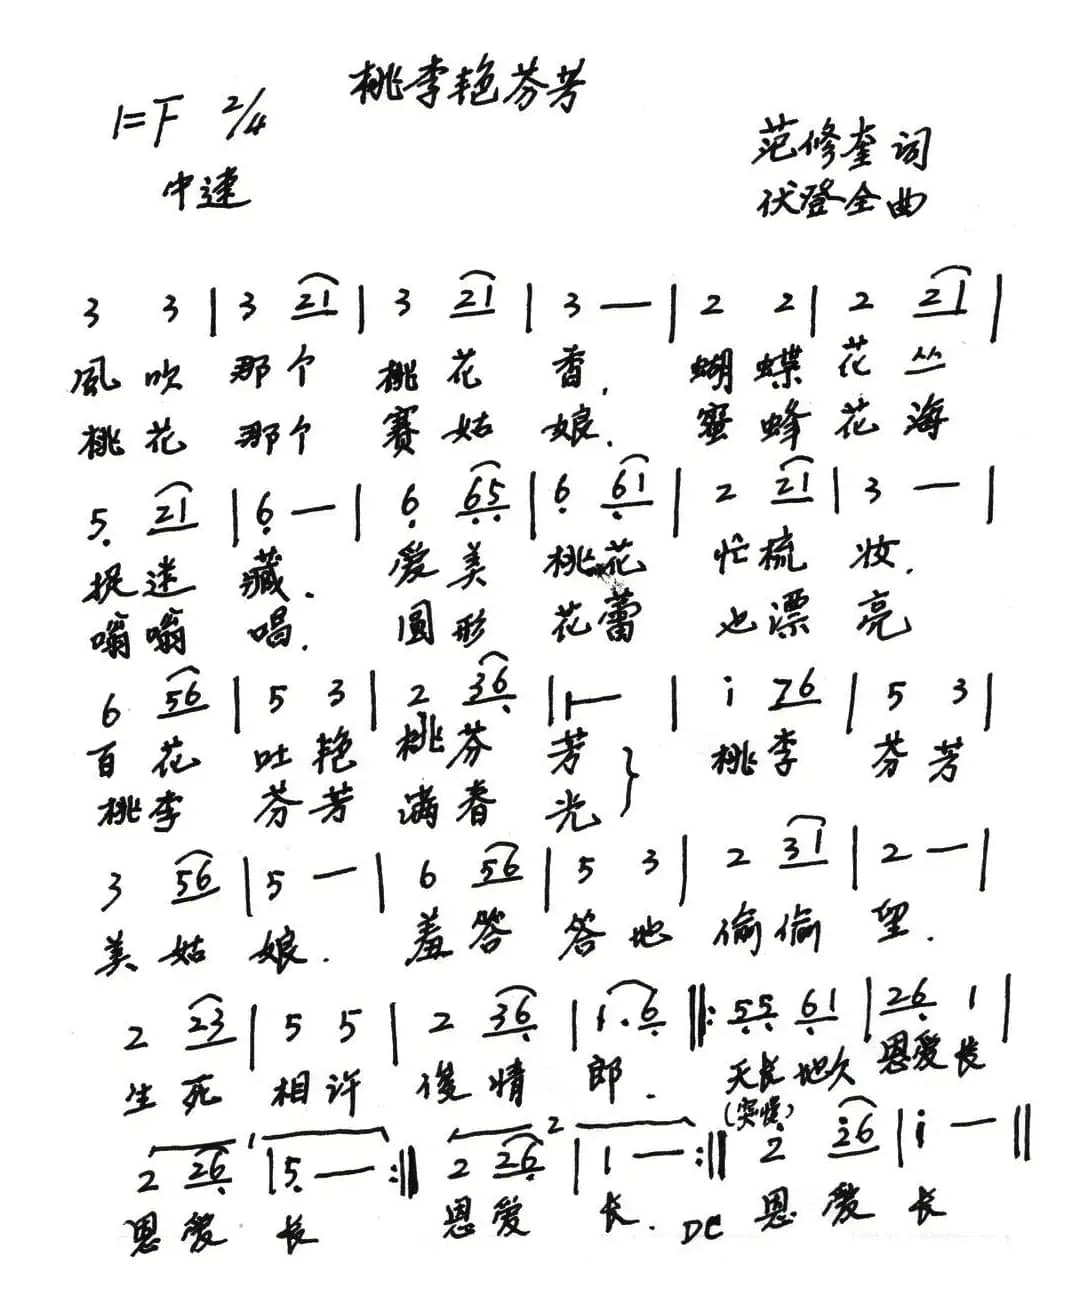 桃李艳芬芳
1=F 2/4
中速
范修奎 词
伏登全 曲
3 3 | 3 21 | 3 21 | 3 — | 2 2 | 2 21 |
風吹 那个 桃花 香, 蝴蝶 花丛
桃花 那个 赛姑 娘. 蜜蜂 花海
5̣ 21 | 6̣ — | 6̣ 6̣5̣ | 6̣ 6̣1 | 2 21 | 3 — |
捉迷 藏. 爱美 桃花 忙梳 妆,
嗡嗡 唱. 圓形 花蕾 也漂 亮
6 56 | 5 3 | 2 36̣ | 1 — | i 76 | 5 3 |
百花 吐艳 桃芬 芳 } 桃李 芬芳
桃李 芬芳 满春 光
3 56 | 5 — | 6 56 | 5 3 | 2 31 | 2 — |
美姑 娘. 羞答 答地 偷偷 望.
2 23 | 5 5 | 2 36̣ | 1·6̣ ‖: 5̣5̣ 6̣1 | 26̣ 1 |
生死 相许 俊情 郎. 天长地久 恩爱长
(突慢)
2 26̣ 1 | 5̣ — :‖ 2 26̣ 2 | 1 — :‖ 2̇ 2̇6 | i — ‖
恩爱 长 恩爱 长. DC 恩爱 长